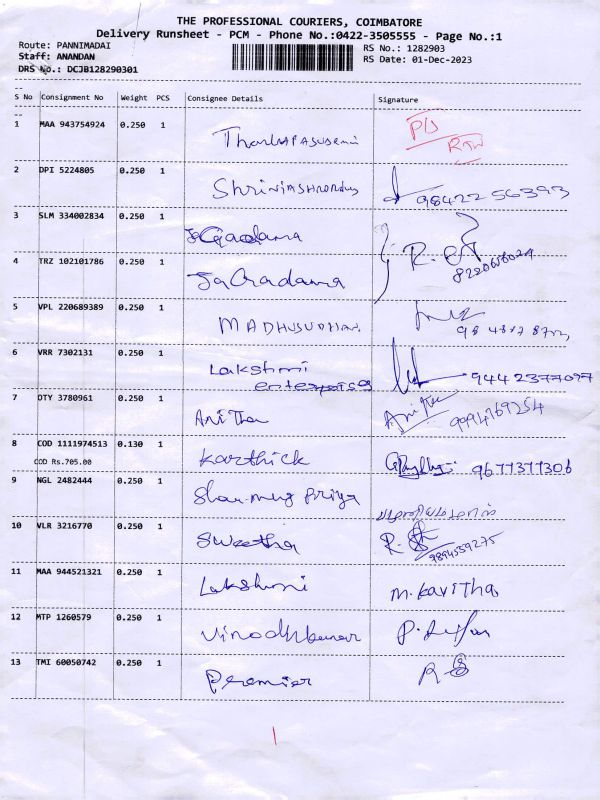 THE PROFESSIONAL COURIERS, COIMBATORE
Delivery Runsheet - PCM - Phone No.:0422-3505555 - Page No.:1
Route: PANNIMADAI
RS No.: 1282903
Staff: ANANDAN
RS Date: 01-Dec-2023
DRS No.: DCJB128290301
S No Consignment No Weight PCS Consignee Details Signature
1 MAA 943754924 0.250 1
2 DPI 5224805 0.250 1 98422 56393
3 SLM 334002834 0.250 1 JaGadama
4 TRZ 102101786 0.250 1 JaGadama R.
5 VPL 220689389 0.250 1 MADHUSUDHAN
6 VRR 7302131 0.250 1 Lakshmi
enterprises 9442377097
7 DTY 3780961 0.250 1 Anitha Anitha 9094769254
8 COD 1111974513 0.130 1 Karthick 9677377306
COD Rs.705.00
9 NGL 2482444 0.250 1 Shanmug Priya
10 VLR 3216770 0.250 1 Swetha R.
9894559275
11 MAA 944521321 0.250 1 Lakshmi M.Kavitha
12 MTP 1260579 0.250 1 Vinodhkumar
13 TMI 60050742 0.250 1 Premier